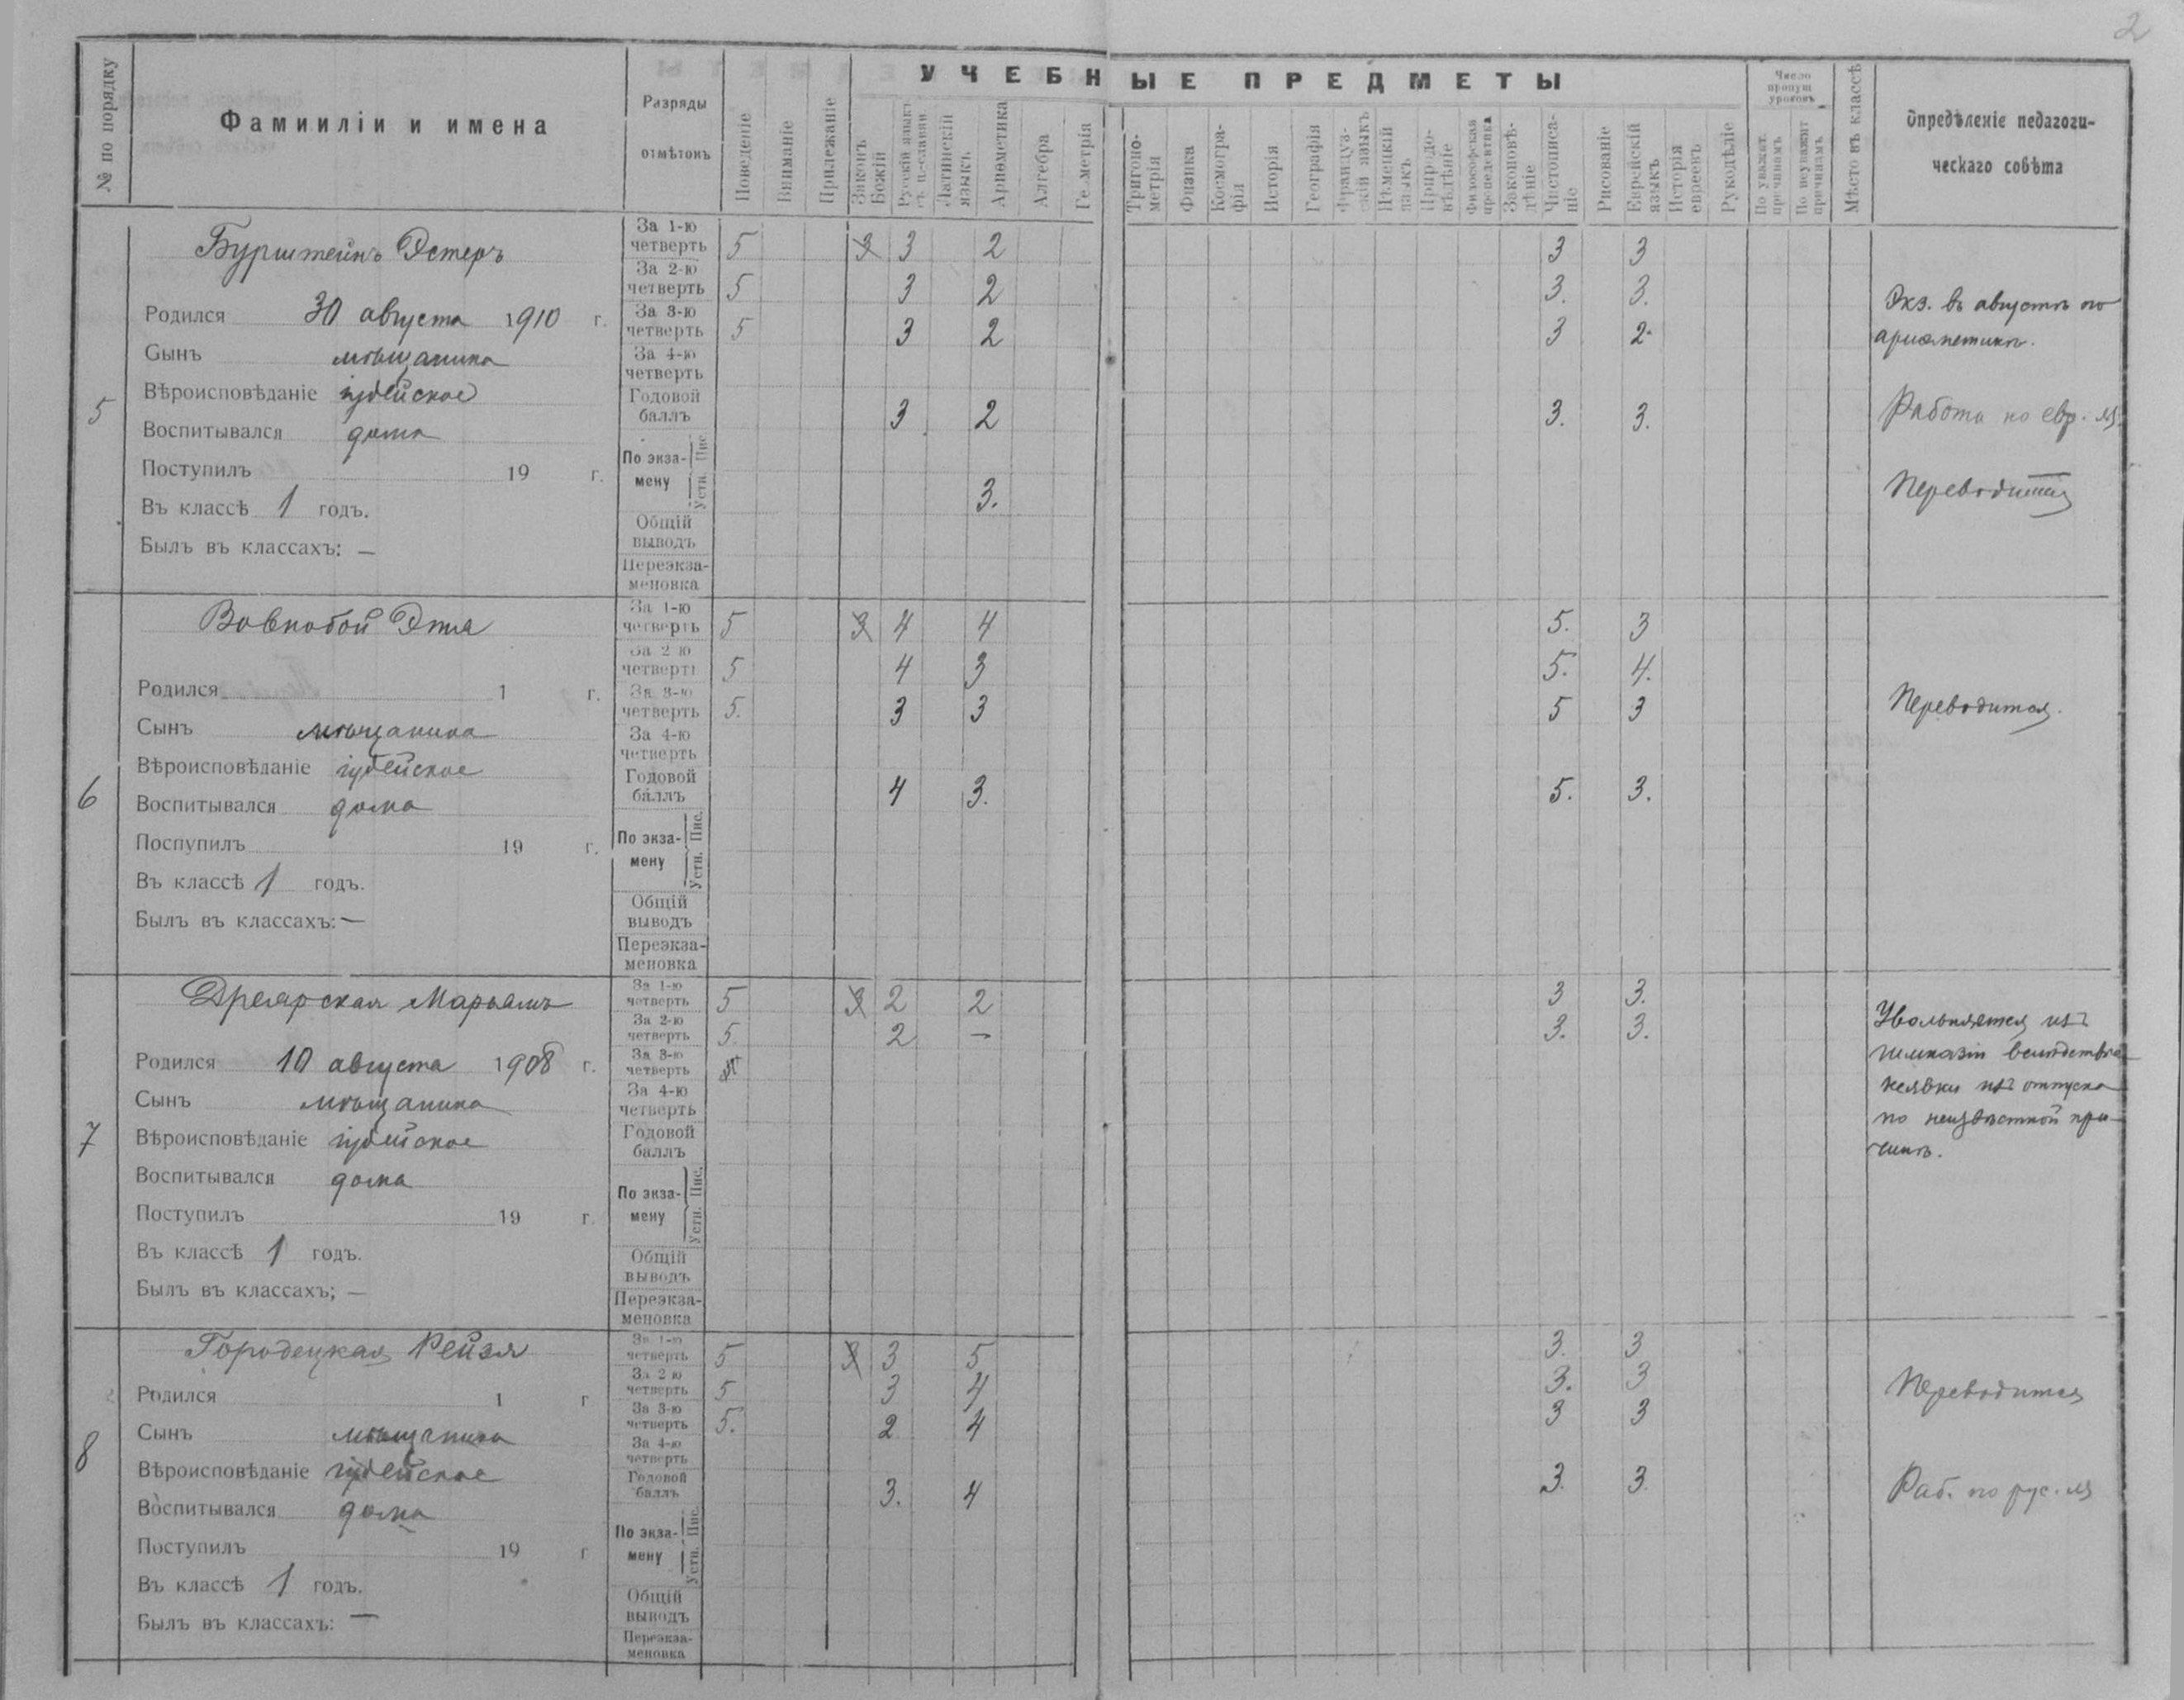 2
№ по порядку
Фамииліи и имена
Разряды
отмѣтокъ
Поведеніе
Вниманіе
Прилежаніе
УЧЕБНЫЕ ПРЕДМЕТЫ
Законъ Божій
Русскій языкъ съ ц-славян
Латинскій языкъ
Ариѳметика
Алгебра
Геометрія
Тригоно-метрія
Физика
Космогра-фія
Исторія
Географія
Француз-скій языкъ
Нѣмецкій языкъ
Природо-вѣдѣніе
Философская пропедевтика
Законовѣ-дѣніе
Чистописа-ніе
Рисованіе
Еврейскій языкъ
Исторія евреевъ
Рукодѣліе
Число пропущ уроковъ
По уважит. причинамъ
По неуважит причинамъ
Мѣсто въ классѣ
Опредѣленіе педагоги-
ческаго совѣта
5
Бурштейнъ Эстеръ
Родился 30 августа 1910 г.
Сынъ мѣщанина
Вѣроисповѣданіе іудейское
Воспитывался дома
Поступилъ 19 г.
Въ классѣ 1 годъ.
Былъ въ классахъ: —
За 1-ю четверть 5 3 3 2 3 3
За 2-ю четверть 5 3 2 3. 3.
За 3-ю четверть 5 3 2 3 2.
За 4-ю четверть
Годовой баллъ 3 2 3. 3.
По экза-мену Пис. Устн. 3.
Общій выводъ
Переэкза-меновка
Экз. въ августѣ по
ариѳметикѣ.
Работа по евр. яз.
Переводится
6
Вовкобой Этя
Родился 1 г.
Сынъ мѣщанина
Вѣроисповѣданіе іудейское
Воспитывался дома
Поспупилъ 19 г.
Въ классѣ 1 годъ.
Былъ въ классахъ: —
За 1-ю четверть 5 3 4 4 5. 3
За 2 ю четверть 5 4 3 5. 4.
За 3-ю четверть 5. 3 3 5 3
За 4-ю четверть
Годовой баллъ 4 3. 5. 3.
По экза-мену Пис. Устн.
Общій выводъ
Переэкза-меновка
Переводится.
7
Марьямъ
Родился 10 августа 1908 г.
Сынъ мѣщанина
Вѣроисповѣданіе іудейское
Воспитывался дома
Поступилъ 19 г.
Въ классѣ 1 годъ.
Былъ въ классахъ; —
За 1-ю четверть 5 3 2 2 3 3.
За 2-ю четверть 5. 2 — 3. 3.
За 3-ю четверть
За 4-ю четверть
Годовой баллъ
По экза-мену Пис. Устн.
Общій выводъ
Переэкза-меновка
Увольняется изъ
гимназіи вслѣдствіе
неявки изъ отпуска
по неизвѣстной при-
чинѣ.
8
Городецкая Рейзя
Родился 1 г
Сынъ мѣщанина
Вѣроисповѣданіе іудейское
Воспитывался дома
Поступилъ 19 г
Въ классѣ 1 годъ.
Былъ въ классахъ: —
За 1-ю четверть 5 3 3 5 3. 3
За 2 ю четверть 5 3 4 3. 3
За 3-ю четверть 5. 2 4 3 3
За 4-ю четверть
Годовой баллъ 3. 4 3. 3.
По экза-мену Пис. Устн.
Общій выводъ
Переэкза-меновка
Переводится
Раб. по рус. яз